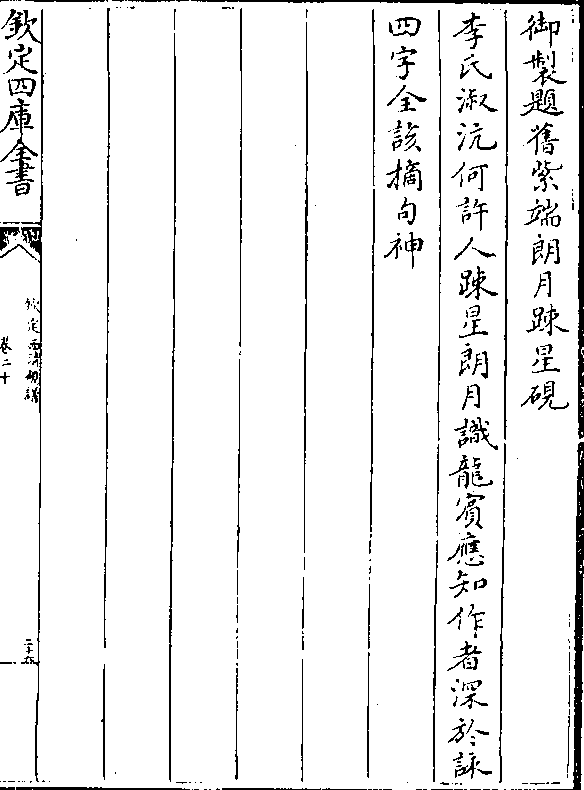 御製題舊紫端朗月踈星硯
李氏淑沆何許人踈星朗月識龍賓應知作者深於詠
四字全該摘句神
欽定四庫全書
欽定西清硯譜
卷二十